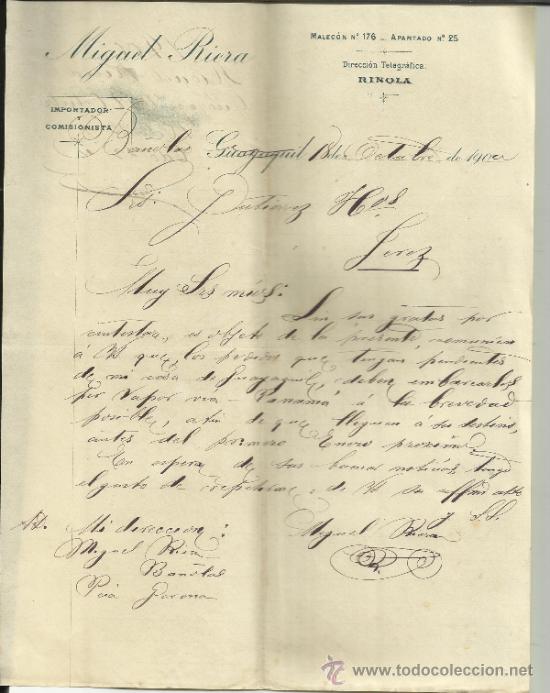 Miguel Riera
MALECÓN Nº 176 - APARTADO Nº 25
Dirección Telegráfica
RINOLA
IMPORTADOR
Y
COMISIONISTA
Guayaquil 18 de Octubre de 190
Gutierrez Hos
Jerez
Muy Srs mios:
Sin sus gratas por
contestar, es objeto de la presente, comunicar
á Vs que los pedidos que tengan pendientes
de mi casa de Guayaquil, deben embarcarlos
por Vapor via - Panamá á la brevedad
posible, a fin de que lleguen á su destino,
antes del primero Enero proximo
En espera de sus buenas noticias, tengo
el gusto de de Vs su affmo atto
y S.S.
Miguel Riera
Mi direccion:
Miguel Riera
Bañolas
Gerona
www.todocoleccion.com